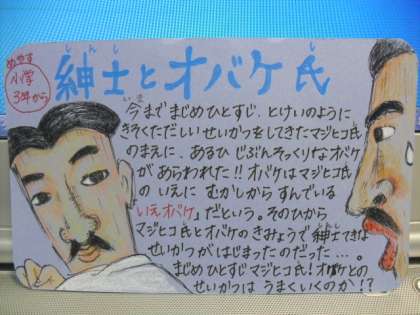 めやす
小学
3年から
しんし し
紳士とオバケ氏
いま
今までまじめひとすじ、とけいのように
きそくただしいせいかつをしてきたマジヒコ氏
のまえに、あるひ じぶんそっくりなオバケ
があらわれた!!オバケはマジヒコ氏
のいえに むかしから すんでいる
「いえオバケ」だという。そのひから
マジヒコ氏とオバケのきみょうで紳士てきな
せいかつがはじまったのだった…。
まじめひとすじマジヒコ氏!オバケとの
せいかつは うまくいくのか!?